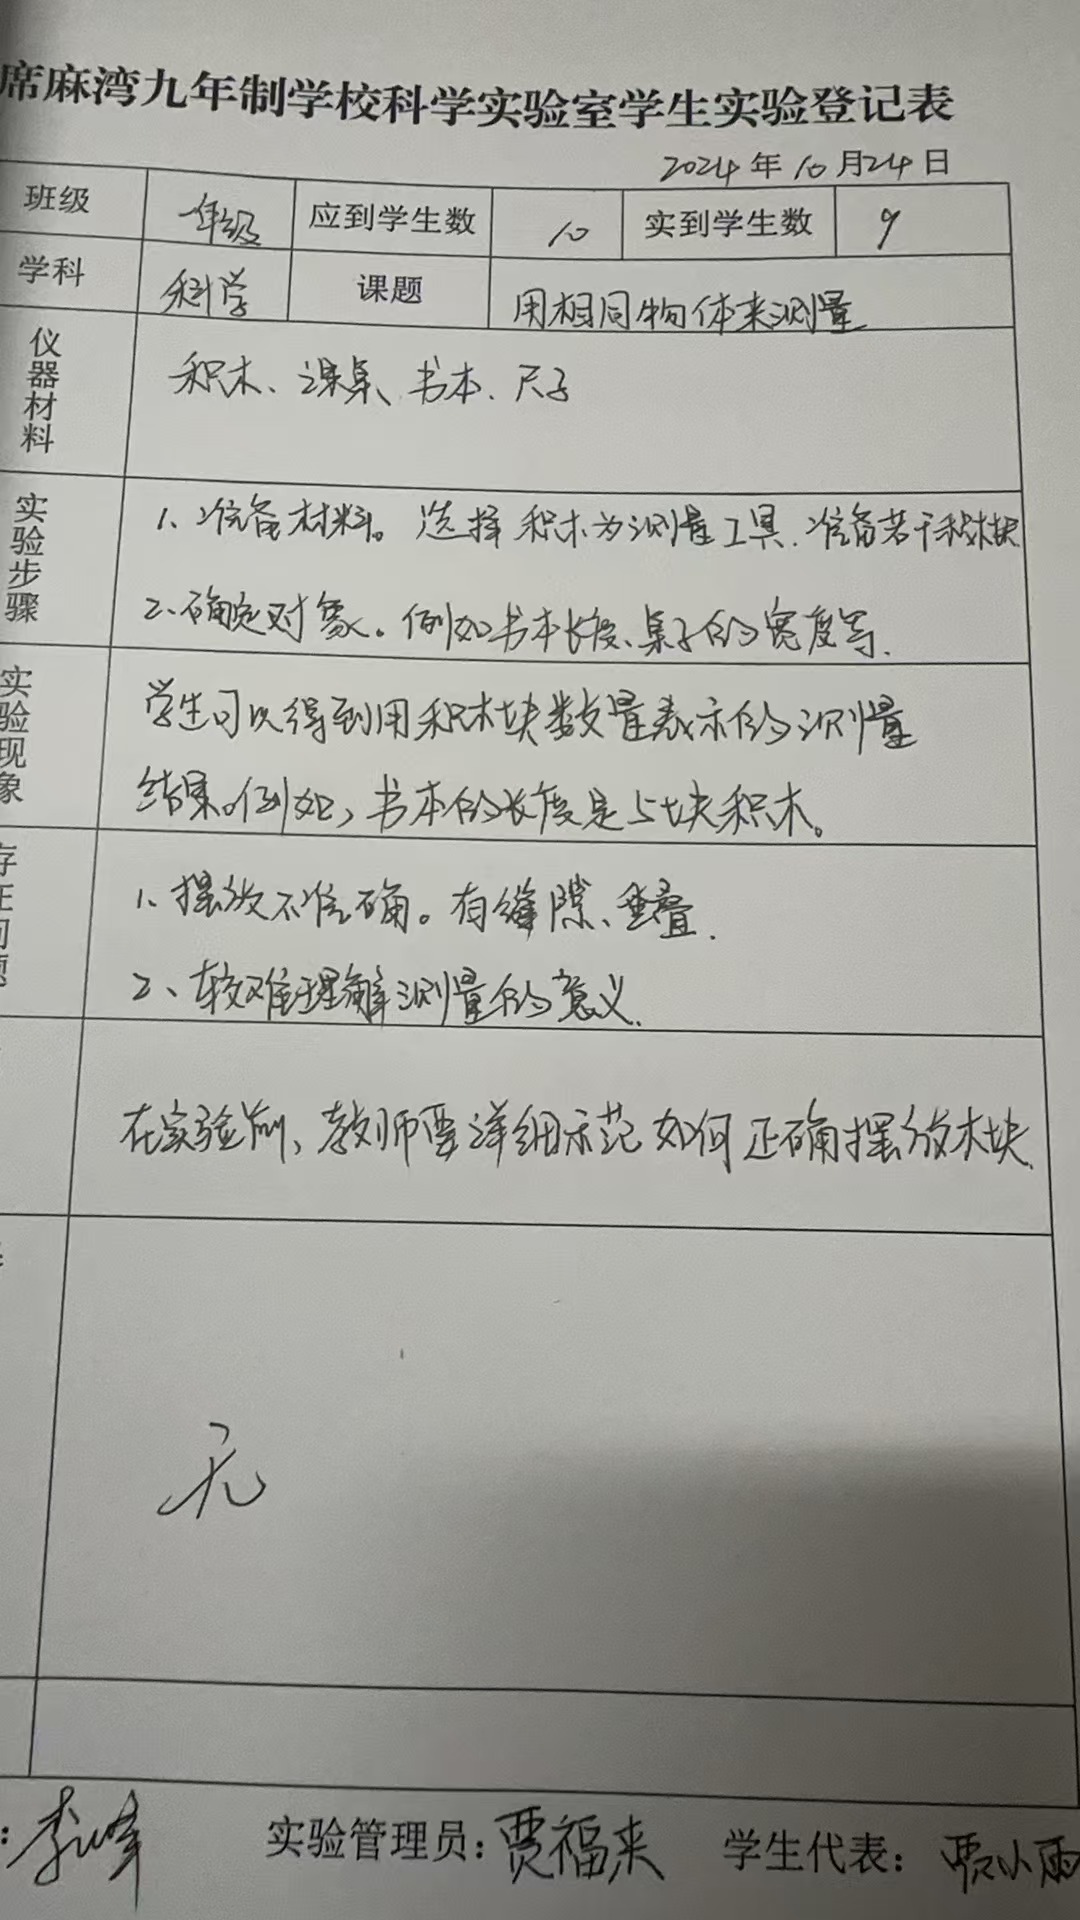 席麻湾九年制学校科学实验室学生实验登记表
2024年10月24日
班级 一年级 应到学生数 10 实到学生数 9
学科 科学 课题 用相同物体来测量
仪器材料 积木、课桌、书本、尺子
实验步骤 1、准备材料。选择积木为测量工具、准备若干积木块
2、确定对象。例如书本长度、桌子的宽度等、
实验现象 学生可以得到用积木块数量表示的测量
结果。例如,书本的长度是5块积木。
存在问题 1、摆放不准确。有缝隙、重叠、
2、较难理解测量的意义、
在实验前、教师要详细示范如何正确摆放木块、
无
:李峰 实验管理员:贾福来 学生代表:贾小雨